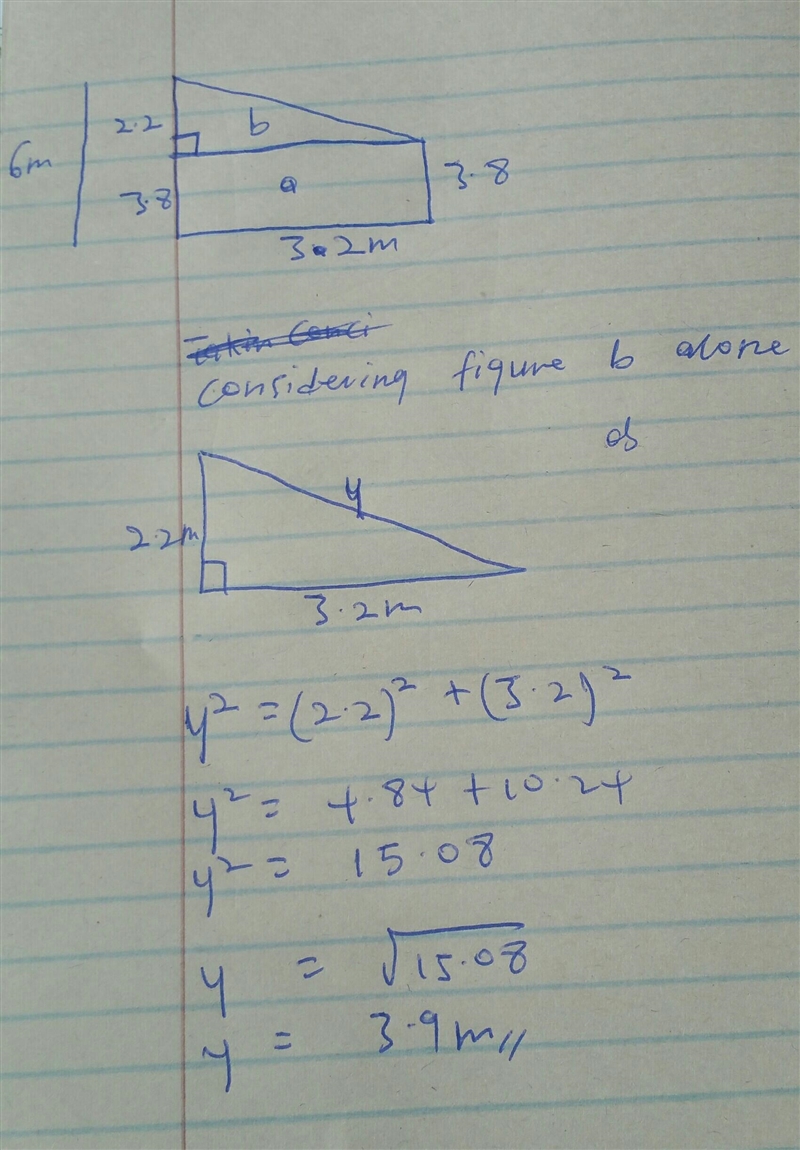 2.2
b
6m
3.8
a
3.8
3.2m
considering figure b alone
as
y
2.2m
3.2m
y² = (2.2)² + (3.2)²
y² = 4.84 + 10.24
y² = 15.08
y = √15.08
y = 3.9m//